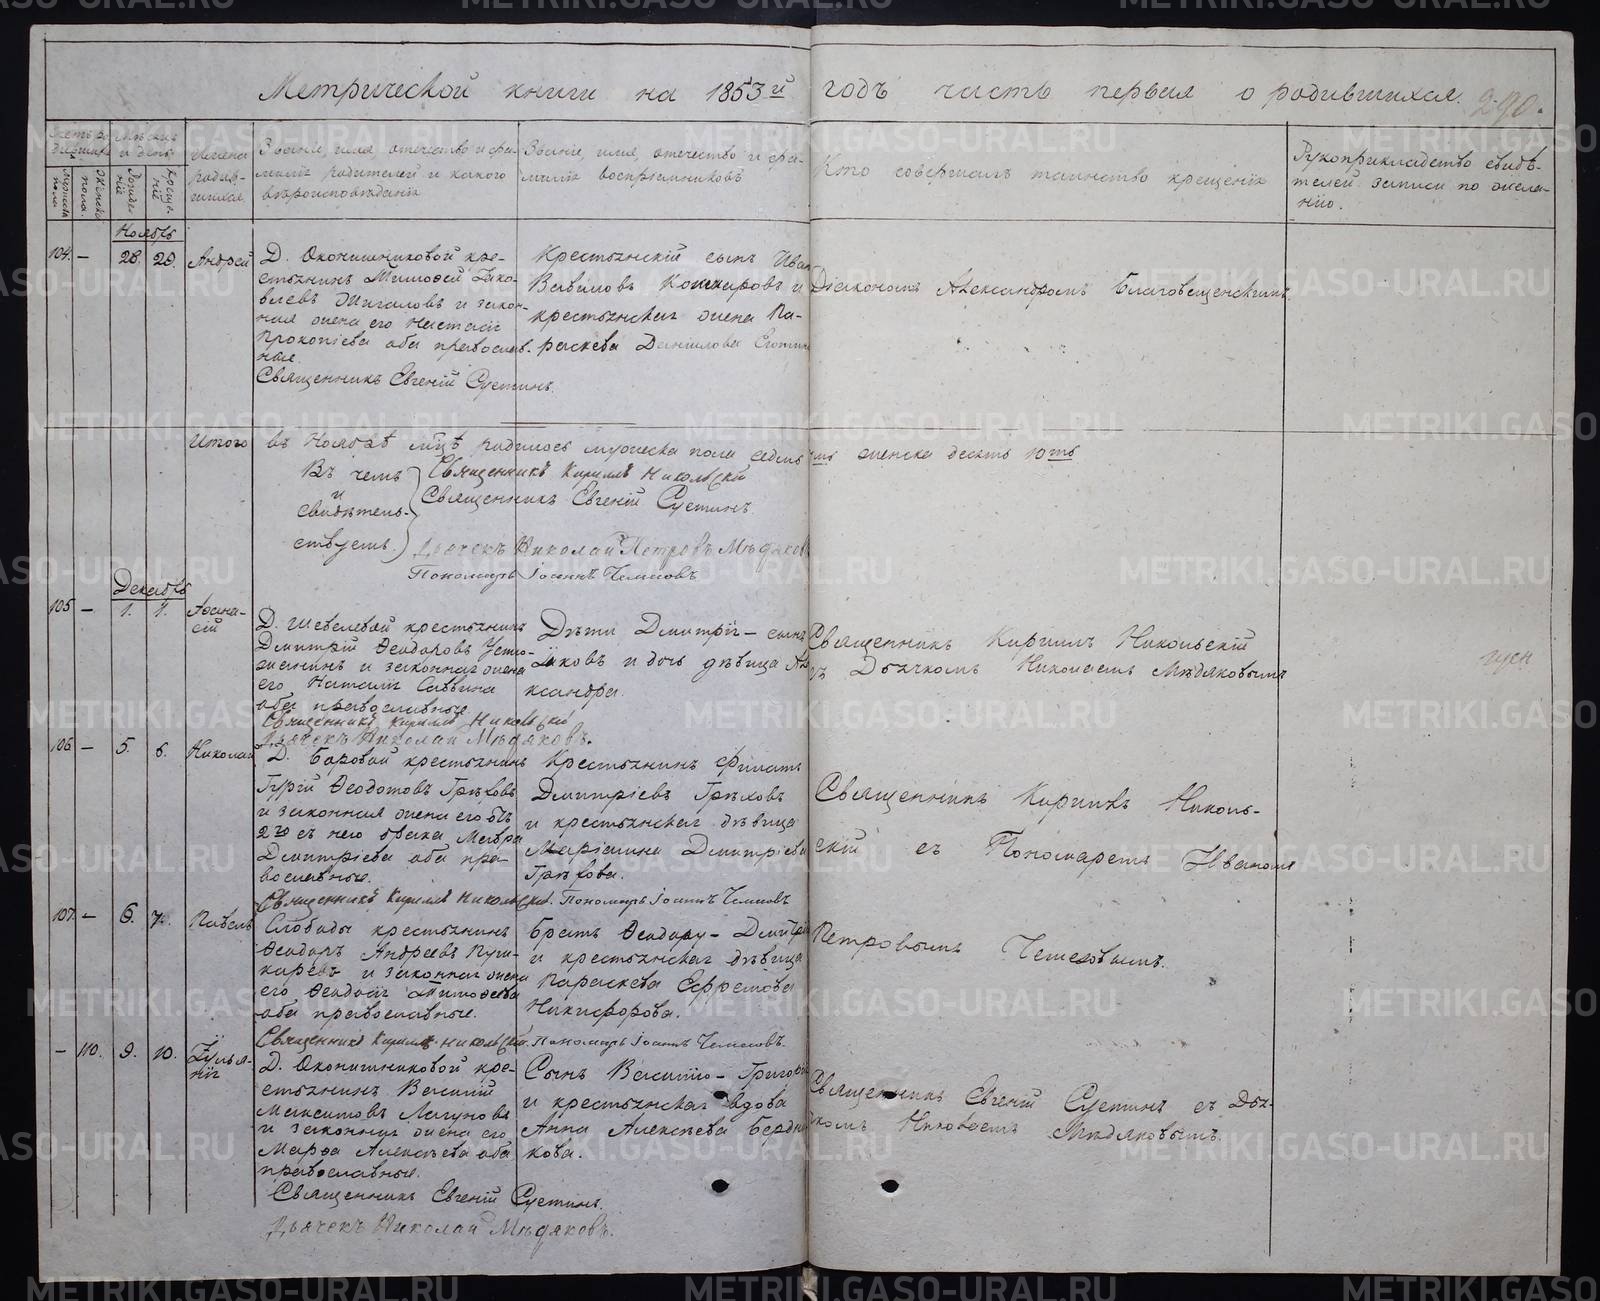 Метрической книги на 1853й годъ часть первая о родившихся. 290.
Мѣсяцъ и день
Имена родив-
шихся.
Званіе, имя, отечество и фа-
милія родителей и какого
вѣроисповѣданія
Званіе, имя, отечество и фа-
милія воспріемниковъ
Кто совершалъ таинство крещенія
Рукоприкладство свидѣ-
телей записи по жела-
нію.
Мужеска
пола
Женска
пола.
Рожде-
ніе
Креще-
ніе
Ноябрь
104. — 28. 29. Андрей
Д. Оконишниковой кре-
стьянинъ Тимофей Яко-
влевъ Жигаловъ и закон-
ная жена его Настасія
Прокопіева оба православ-
ные.
Священникъ Евгеній Суетинъ.
Крестьянскій сынъ Иванъ
Вавиловъ и
крестьянская жена Па-
раскева Даніилова
Діаконъ Александръ Благовещенскій
Итого въ Ноябрѣ мцѣ родилось мужеска пола седмь женска десять 10ть
Въ чемъ
и
свидѣтель-
ствуемъ.
Священникъ Кириллъ Никольскій
Священникъ Евгеній Суетинъ.
Дьячекъ Николай Петровъ Мѣдяковъ
Пономарь Іоаннъ Чемесовъ
Декабрь
105 — 1. 1. Аѳана-
сій
Д. Шевелевой крестьянинъ
Дмитрій Ѳеодоровъ Устю-
жанинъ и законная жена
его Наталія Саввина
оба православные.
Священникъ Кириллъ Никольскій
Дьячекъ Николай Мѣдяковъ.
Дѣти Дмитрія — сынъ
Іаковъ и дочь дѣвица Але-
ксандра.
Священникъ Кириллъ Никольскій
съ Дьячкомъ Николаемъ Мѣдяковымъ
106 — 5. 6. Николай
Д. Боровой крестьянинъ
Гурій Ѳеодотовъ Грѣховъ
и законная жена его отъ
2го съ нею брака Мавра
Дмитріева оба пра-
вославные.
Священникъ Кириллъ Никольскій. Пономарь Іоаннъ Чемесовъ
Крестьянинъ Филатъ
Дмитріевъ Грѣховъ
и крестьянская дѣвица
Маріамна Дмитріева
Грѣхова.
Священникъ Кириллъ Николь-
скій съ Пономаремъ Иваномъ
Петровымъ Чемесовымъ.
107. — 6. 7. Павелъ
Слободы крестьянинъ
Ѳеодоръ Андреевъ Пуш-
каревъ и законная жена
его Ѳеодосія Тимофеева
оба православные.
Священникъ Кириллъ Никольскій. Пономарь Іоаннъ Чемесовъ.
Братъ Ѳеодору — Дмитрій
и крестьянская дѣвица
Параскева Ефремова
Никифорова.
— 110. 9. 10. Іулья-
нія
Д. Оконишниковой кре-
стьянинъ Василій
Максимовъ Лагуновъ
и законная жена его
Марѳа Алексѣева оба
православные.
Священникъ Евгеній Суетинъ.
Дьячекъ Николай Мѣдяковъ.
Сынъ Василію — Григорій
и крестьянская вдова
Анна Алексѣева Бердни-
кова.
Священникъ Евгеній Суетинъ съ Дья-
чкомъ Николаемъ Мѣдяковымъ.
METRIKI.GASO-URAL.RU